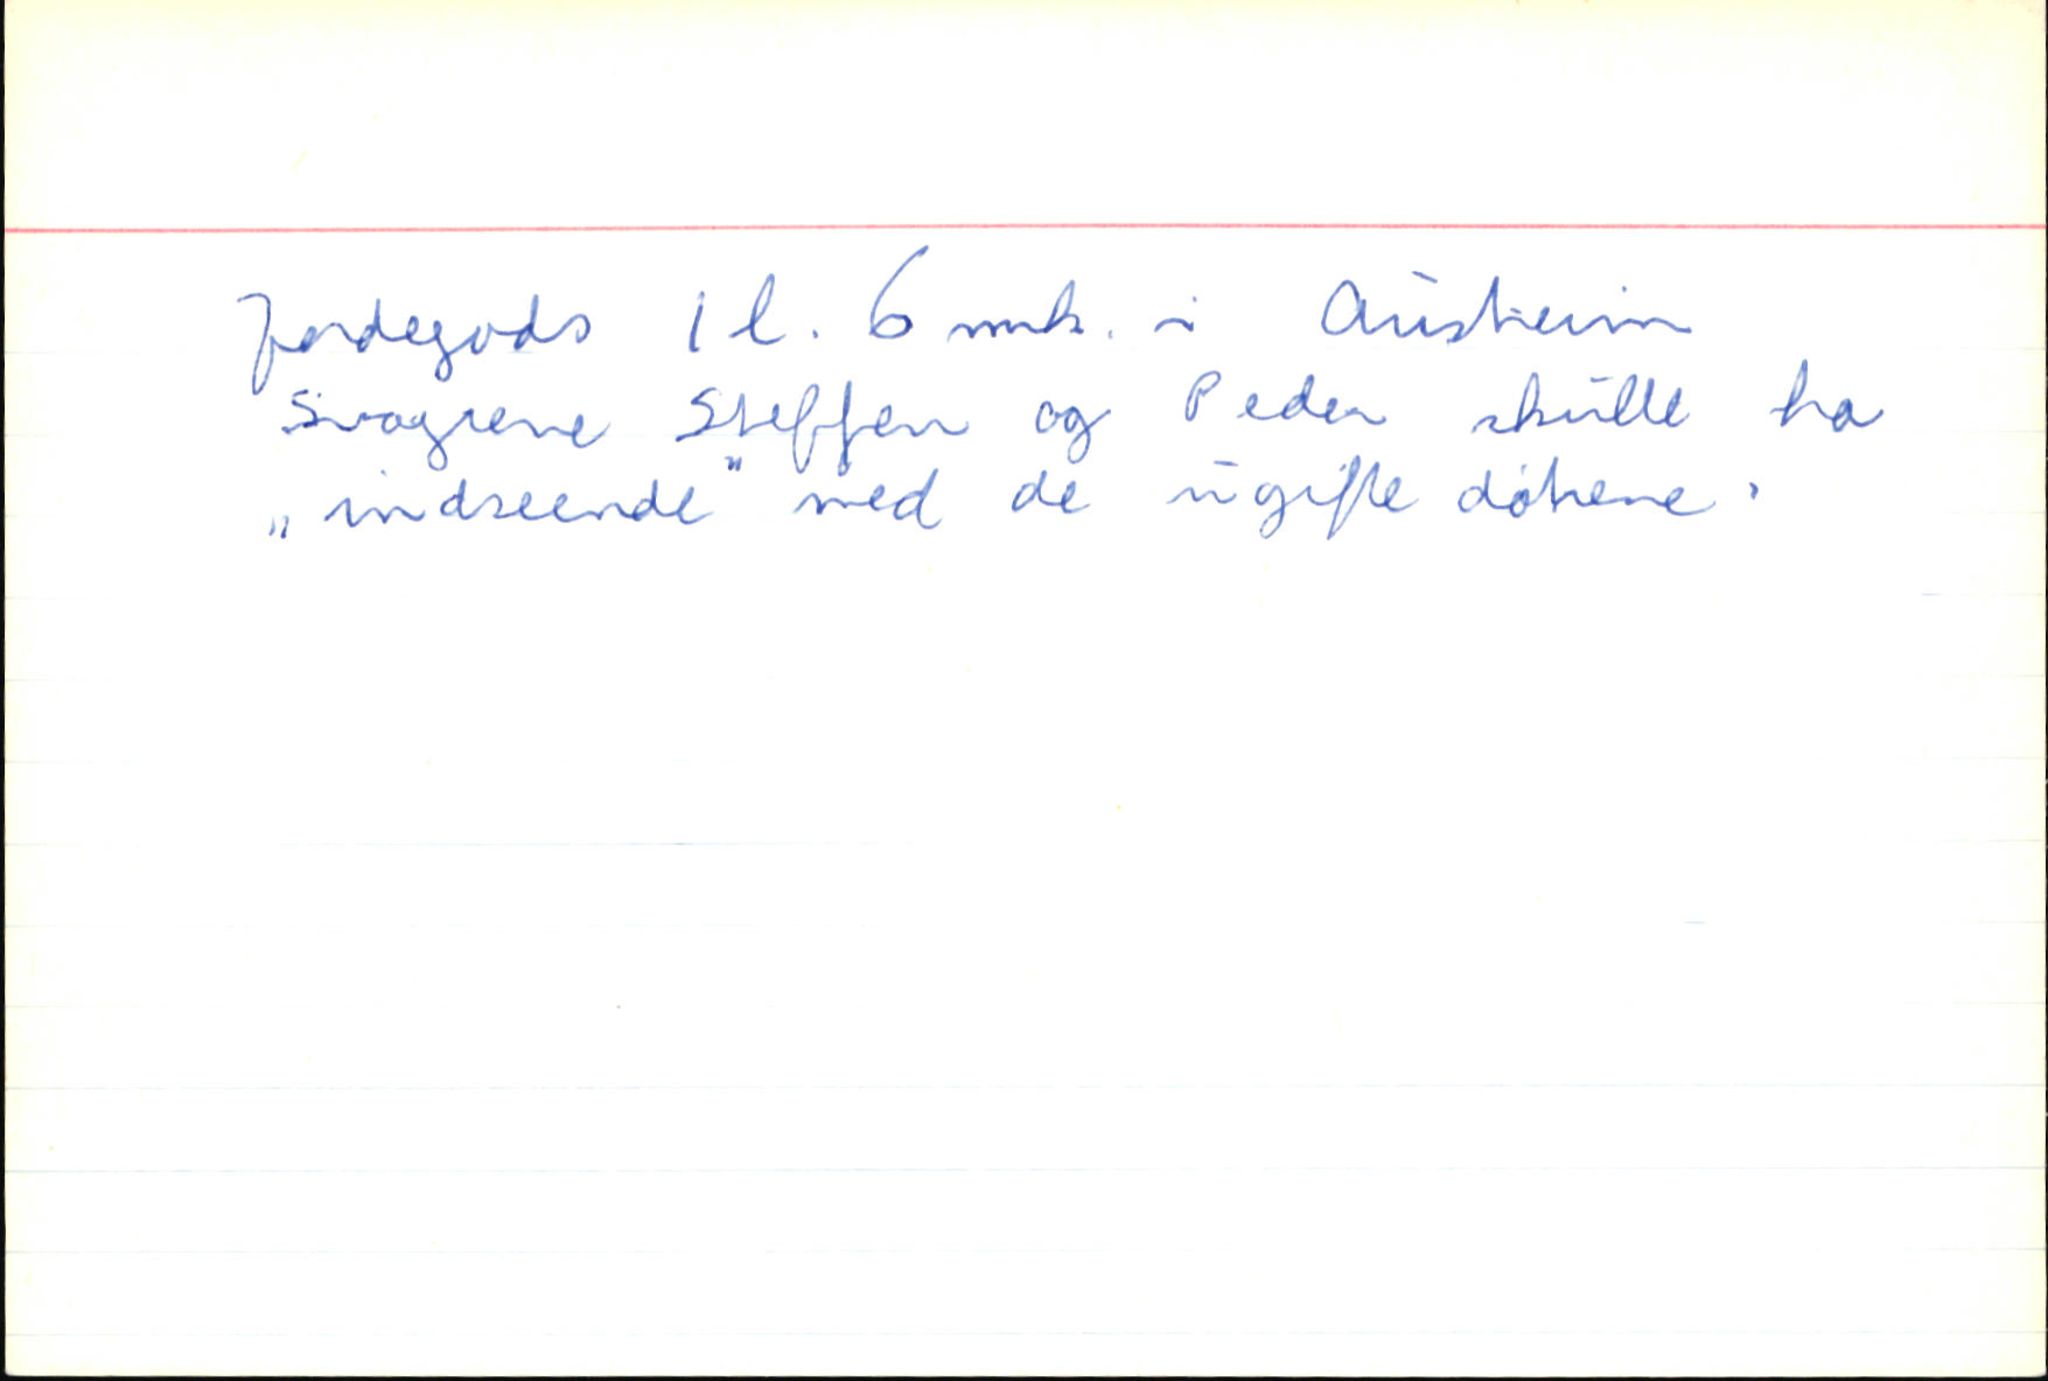 Jordegods 1 l. 6 mrk. i Austreim
Svogrene Steffen og Peder skulle ha
„indseende" med de ugifte døtrene.